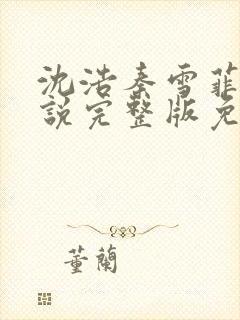 沈浩秦雪菲
說完整版免
董蘭